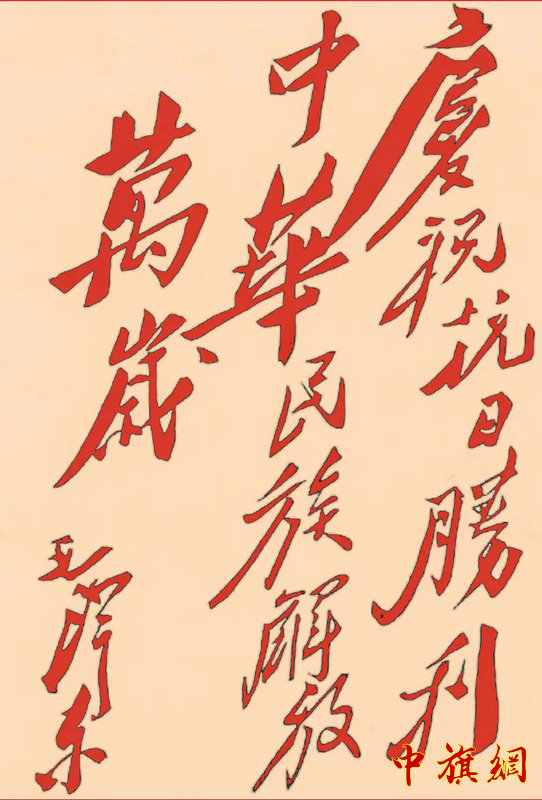 慶祝抗日勝利
中華民族解放
萬歲
毛澤东
中旗網